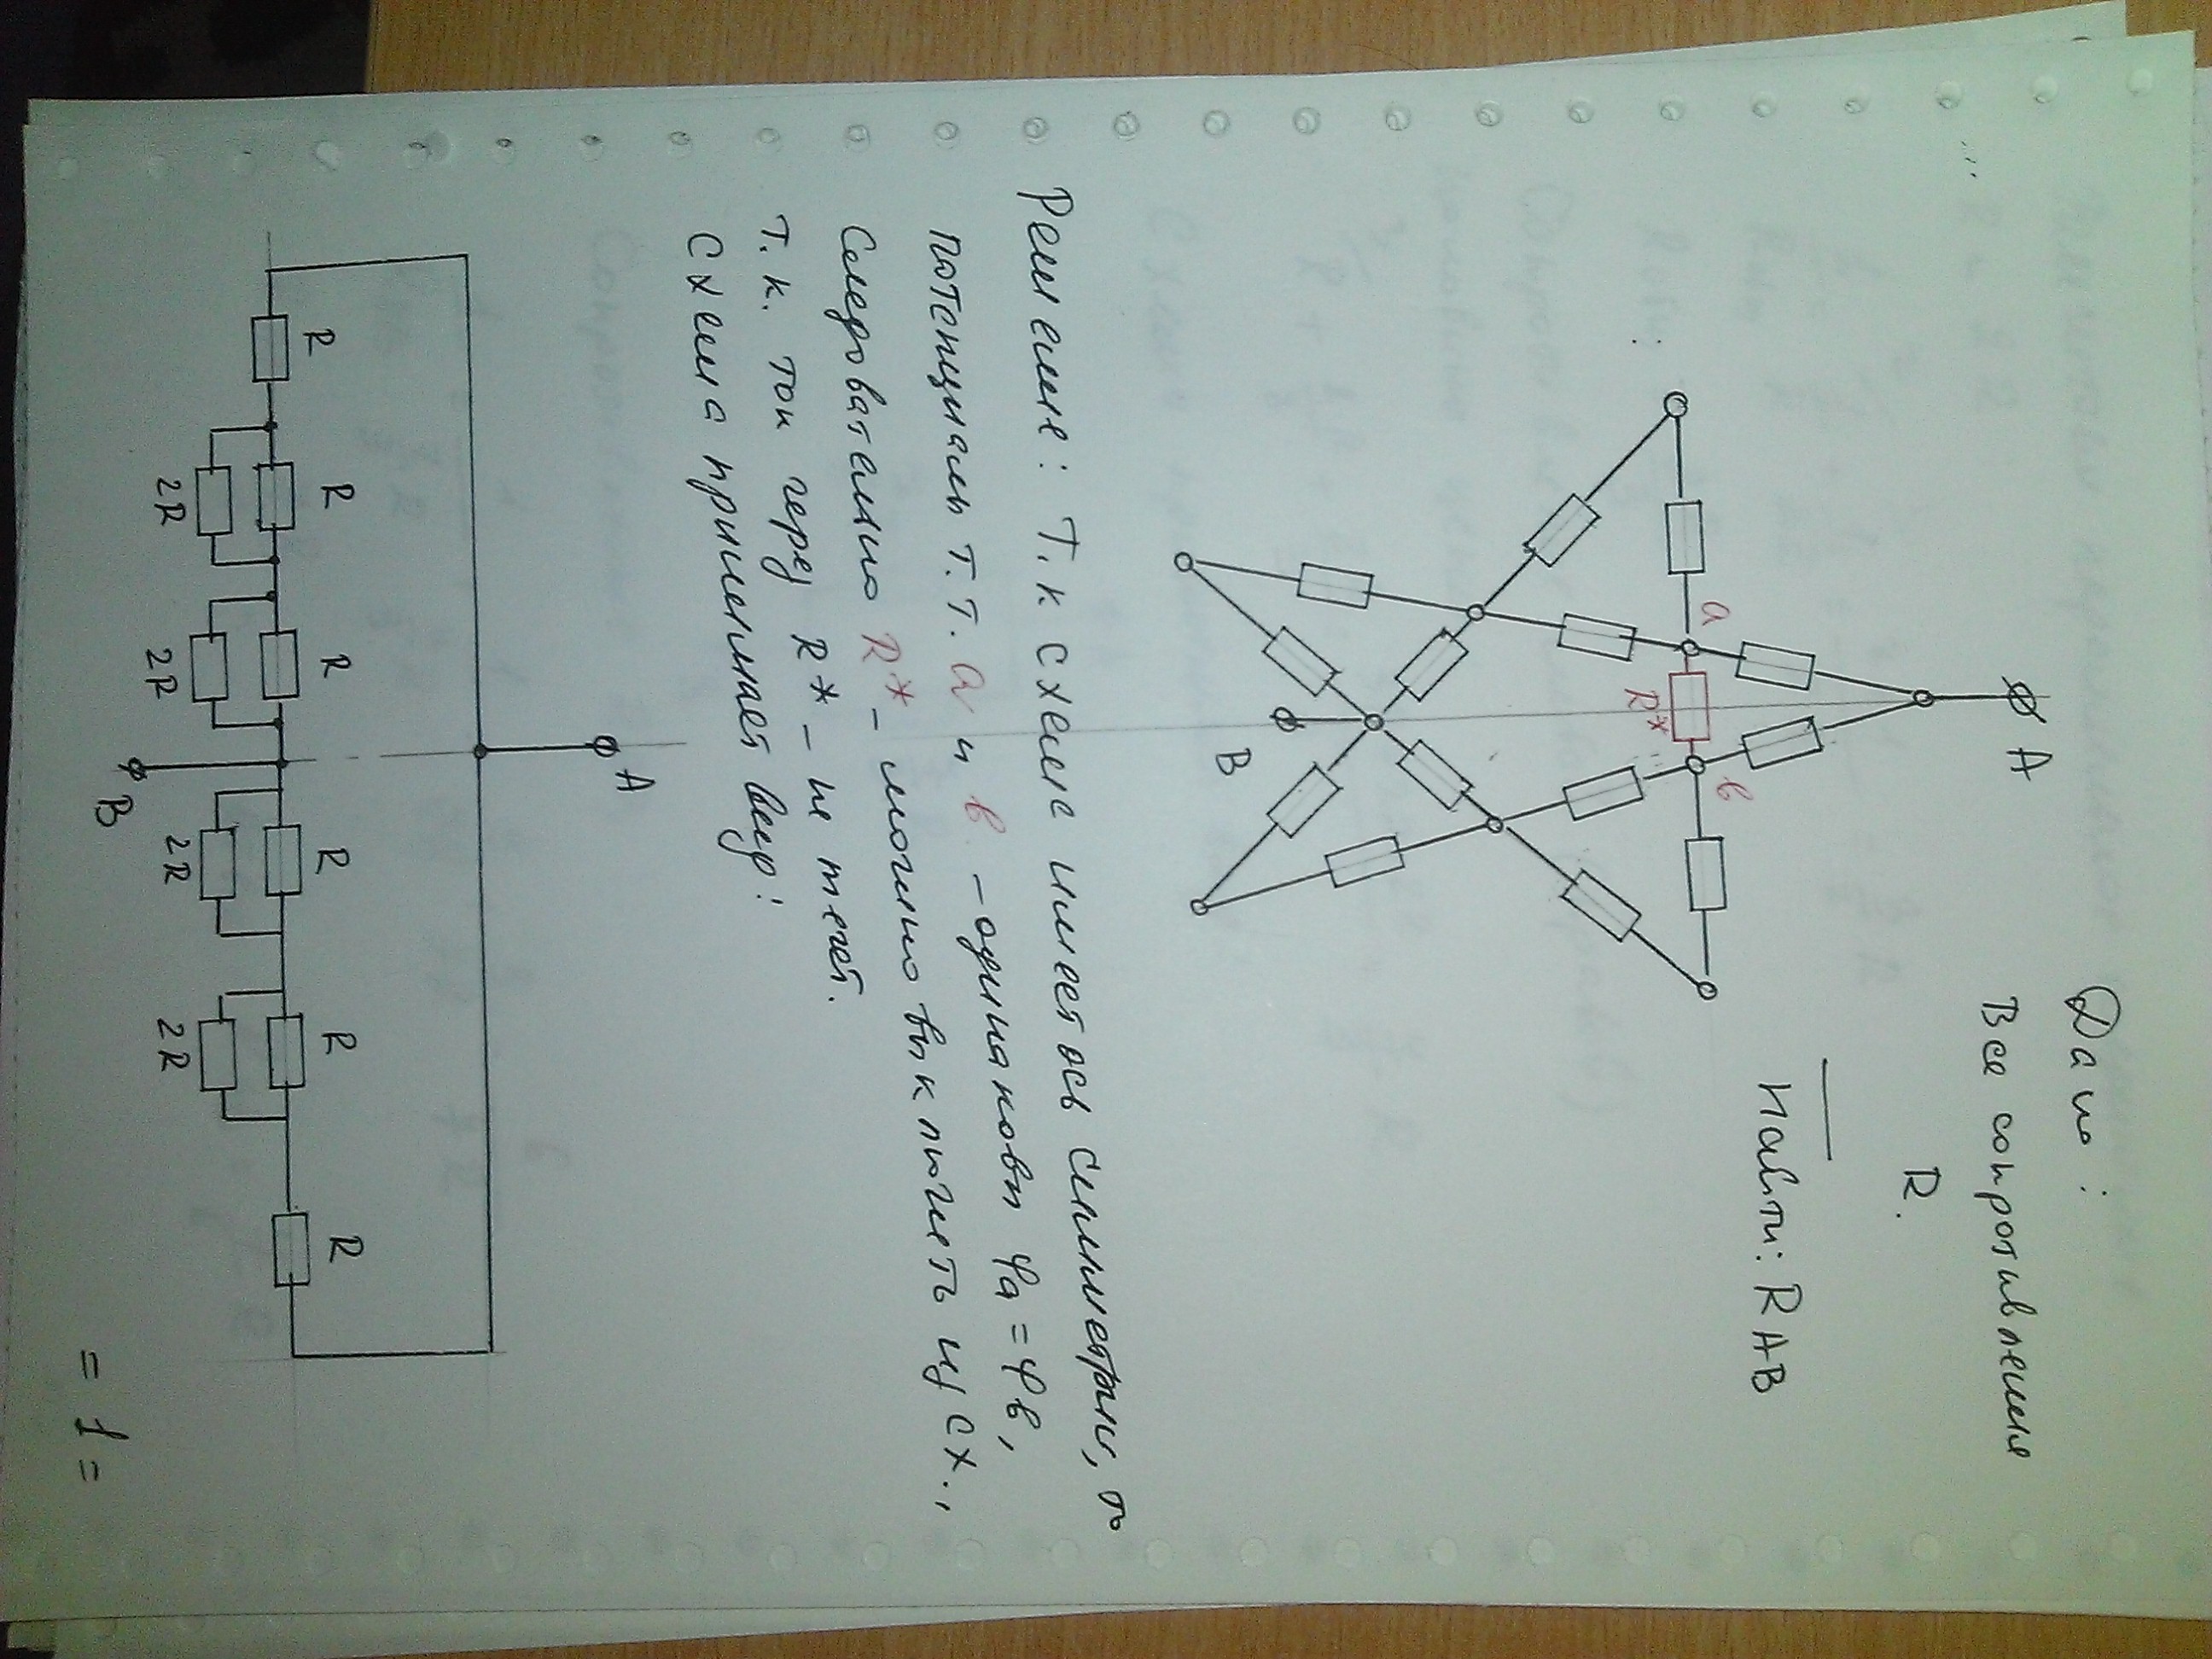 Дано:
Все сопротивления
R.
Найти: RAB
A
a
в
R*
B
Решение: Т.к схема имеет ось симметрии, то
потенциалы т.т. a и в - одинаковы φa = φв,
Следовательно R* - можно выключить из сх.,
т.к. ток через R* - не течет.
Схема принимает вид:
A
R
R
R
R
R
R
2R
2R
2R
2R
B
= 1 =